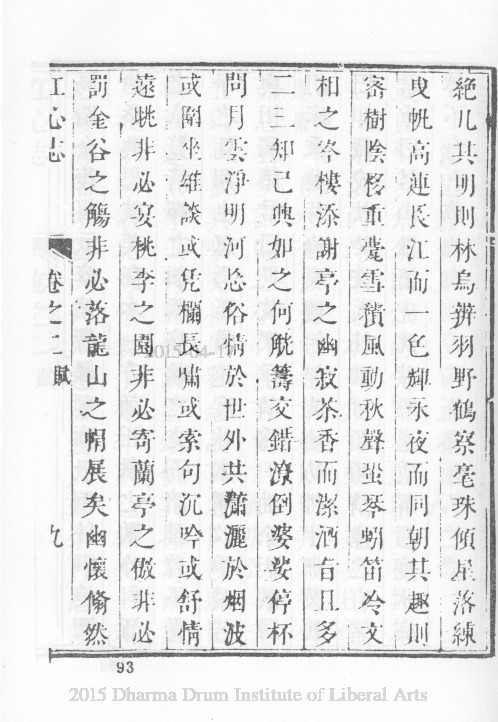 絶几其明則林烏辨羽野鶴察毫珠傾星落練
曳帆高連長江而一色輝永夜而同朝其趣則
密樹陰移重甍雪積風動秋聲蛩琴蚓笛冷文
相之岑樓添謝亭之幽寂茶香而潔酒旨且多
二三知己興如之何觥籌交錯潦倒婆娑停杯
問月雲淨明河忘俗情於世外共瀟灑於烟波
或圍坐雄談或凭欄長嘯或索句沉吟或舒情
遠眺非必宴桃李之園非必寄蘭亭之傲非必
罰金谷之觴非必落龍山之帽展矣幽懷翛然
江心志
卷之二
賦
九
93
2015-04-17
2015 Dharma Drum Institute of Liberal Arts